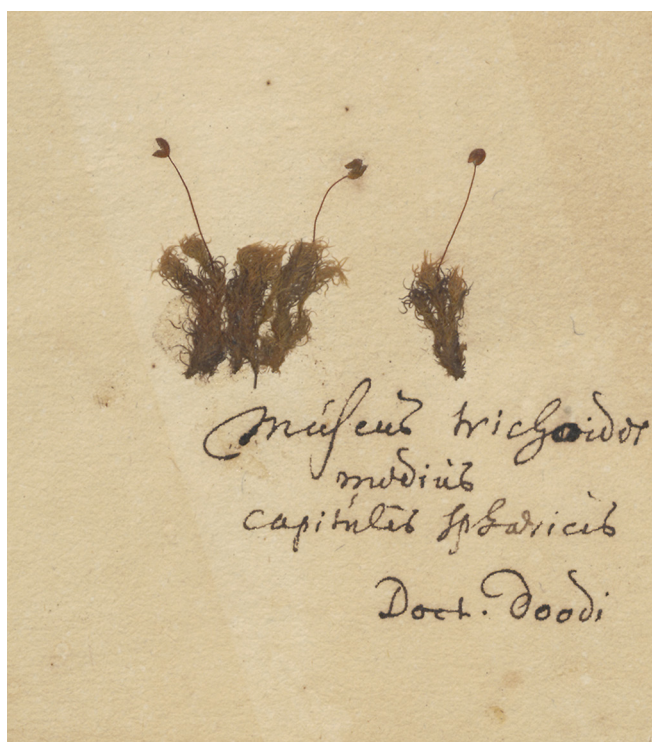 Muscus trichoides
medius
capitulis sphæricis
Doct. Doodi